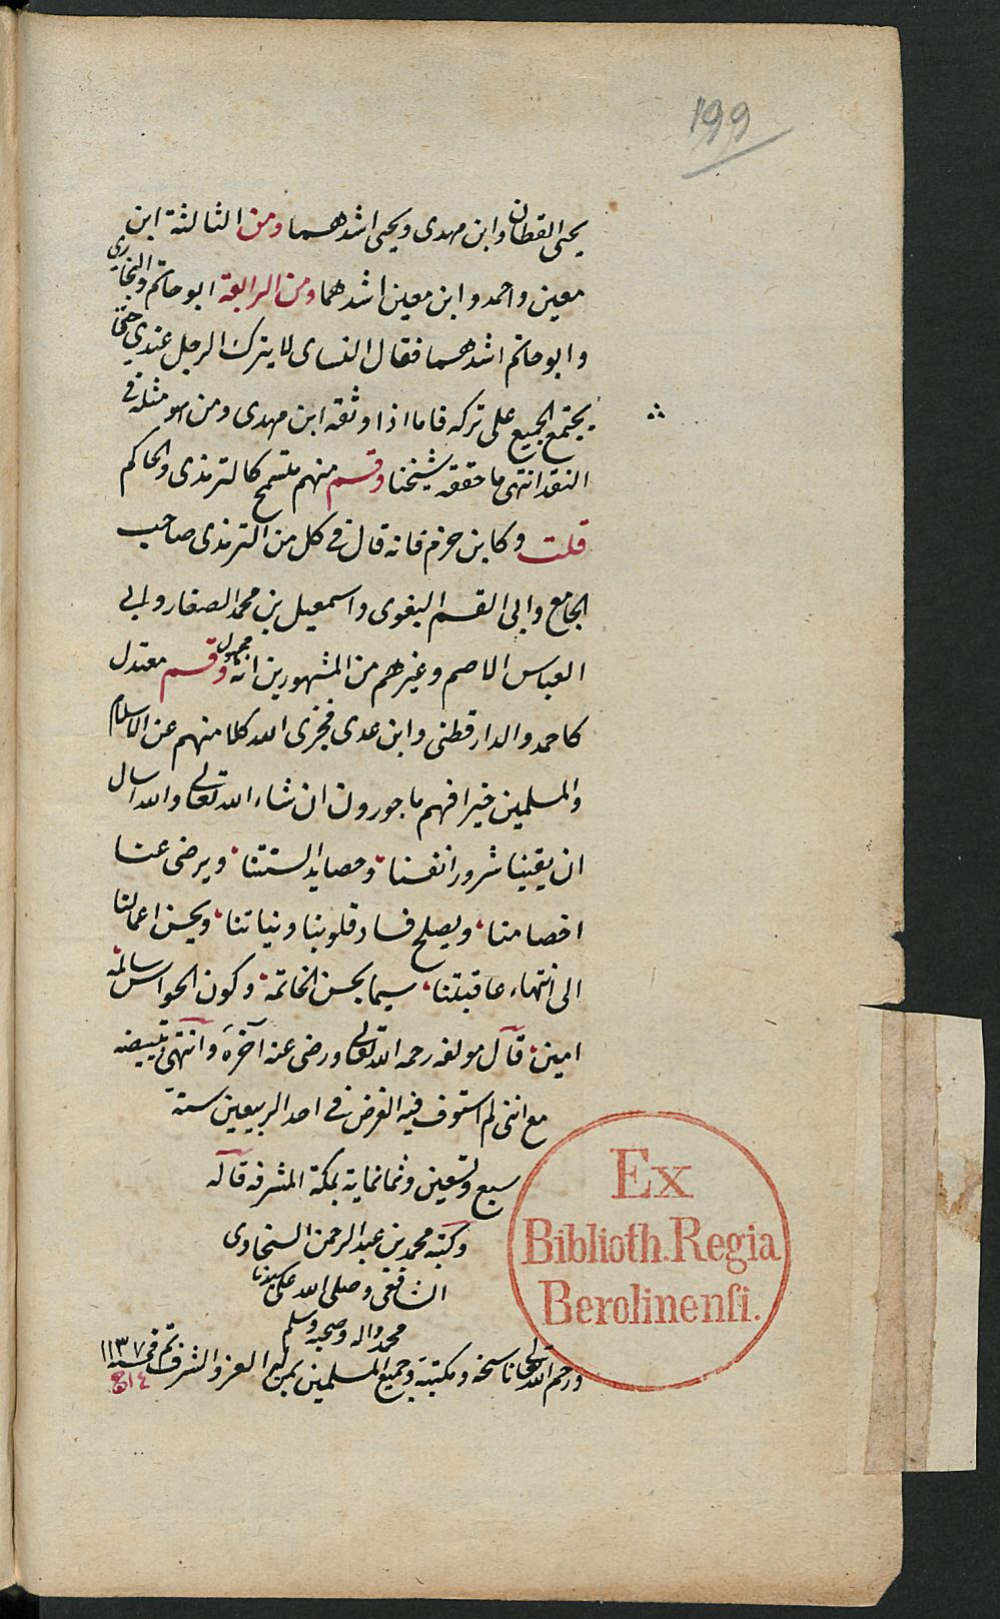 199
يحيى القطان وابن مهدى ويحيى اشدهما ومن الثالثة ابن
معين واحمد وابن معين اشدهما ومن الرابعة ابو حاتم والبخاري
وابو حاتم اشدهما فقال النساى لا يترك الرجل عندي حتى
يجتمع الجميع على تركه فاما اذا وثقه ابن مهدى ومن هو مثله فى
النقد انتهى ما حققه شيخنا وقسم منهم متسمح كالترمذى والحاكم
قلت وكابن حزم فانه قال فى كل من الترمذى صاحب
الجامع وابى القسم البغوى واسمعيل بن محمد الصفار وابى
العباس الاصم وغيرهم من المشهورين انه مجهول وقسم معتدل
كاحمد والدارقطنى وابن عدى فجزى الله كلا منهم عن الاسلام
والمسلمين خيرا فهم ماجورون ان شاء الله تعالى والله اسال
ان يقينا شرور انفسنا وحصايد السنتنا ويرضى عنا
اخصامنا ويصلح فساد قلوبنا ونياتنا ويحسن اعمالنا
الى انتهاء عاقبتنا سيما بحسن الخاتمة وكون الحواس سالمة
امين قال مولفه رحمه الله تعالى ورضى عنه آخره وانتهى تبييضه
مع اننى لم استوف فيه الغرض فى احد الربيعين سنة
سبع وتسعين وثمانماية بمكة المشرفة قاله
وكتبه محمد بن عبد الرحمن السخاوى
الشافعى وصلى الله على سيدنا
محمد واله وصحبه وسلم
ورحم الله تعالى ناسخه ومكتبه وجميع المسلمين العز والشرف تم فى سنة ١١٣٧
Ex
Biblioth. Regia
Berolinensi.